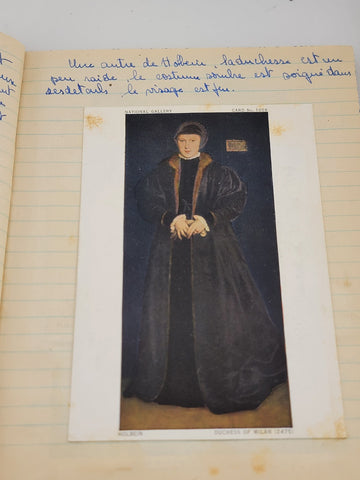 Une autre de Holbein, la duchesse est un
peu raide, le costume sombre est soigné dans
ses détails
NATIONAL GALLERY CARD No.
HOLBEIN DUCHESS OF MILAN (2475)